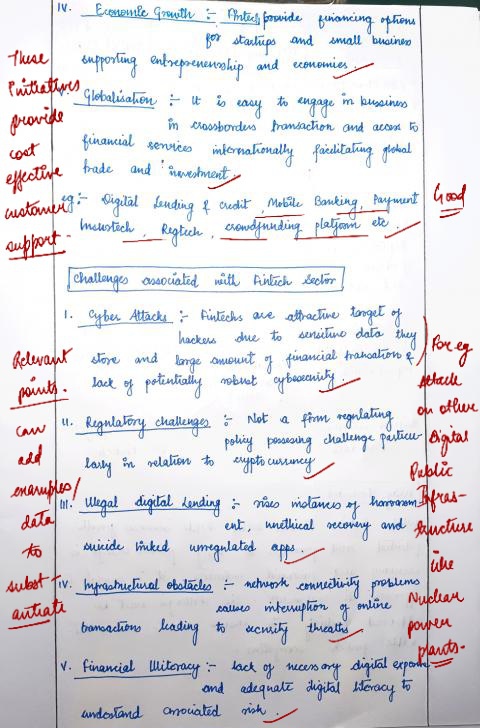 IV. Economic Growth :- Fintech provide financing options
for startups and small business
supporting entrepreneurship and economies.
Globalisation :- It is easy to engage in bussiness
in crossborders transaction and access to
financial services internationally facilitating global
trade and investment.
eg:- Digital Lending & credit, Mobile Banking, Payment
Insustech, Regtech, crowdfunding platform etc.
These
initiatives
provide
cost
effective
customer
support -
Good
Challenges associated with Fintech Sector
I. Cyber Attacks :- Fintechs are attractive target of
hackers due to sensitive data they
store and large amount of financial transation &
lack of potentially robust cybersecurity.
II. Regulatory challenges :- Not a firm regulating
policy possesing challenge particu-
larly in relation to cryptocurrency
III. Illegal digital Lending :- rises instances of harrasm-
ent, unethical recovery and
suicide linked unregulated apps.
IV. Infrastructural obstacles :- network connectivity problems
causes interruption of online
transactions leading to security threaths
V. Financial Illiteracy :- lack of necessary digital
and adequate digital literacy to
understand associated risk.
Relevant
points.
can
add
examples/
data
to
subst-
antiate
For eg
Attack
on other
Digital
Public
Infras-
tructure
like
Nuclear
power
plants.